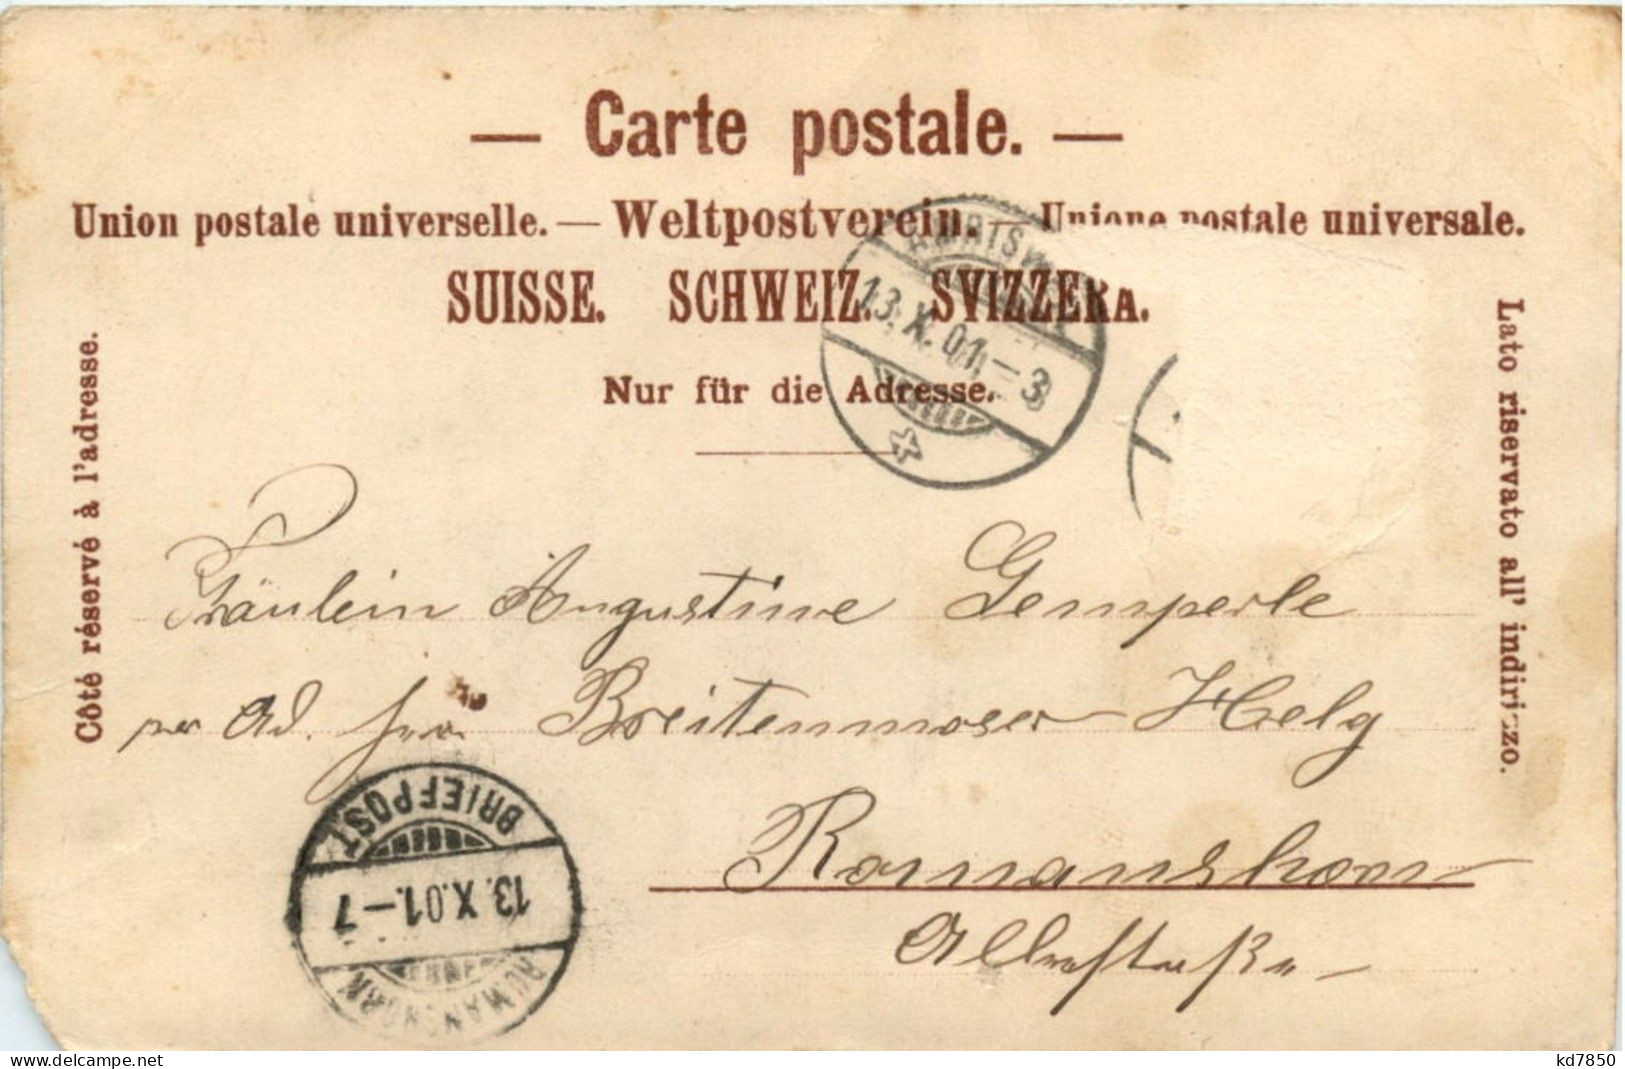 — Carte postale. —
Union postale universelle. — Weltpostverein. — Unione postale universale.
SUISSE. SCHWEIZ. SVIZZERA.
Nur für die Adresse.
Côté réservé à l'adresse.
Lato riservato all' indirizzo.
13.X.01.–3
Fräulein Augustine Gemperle
per Ad. Breitenmoser Helg
Romanshorn
BRIEFPOST
13.X.01.–7
ROMANSHORN
www.delcampe.net
kd7850